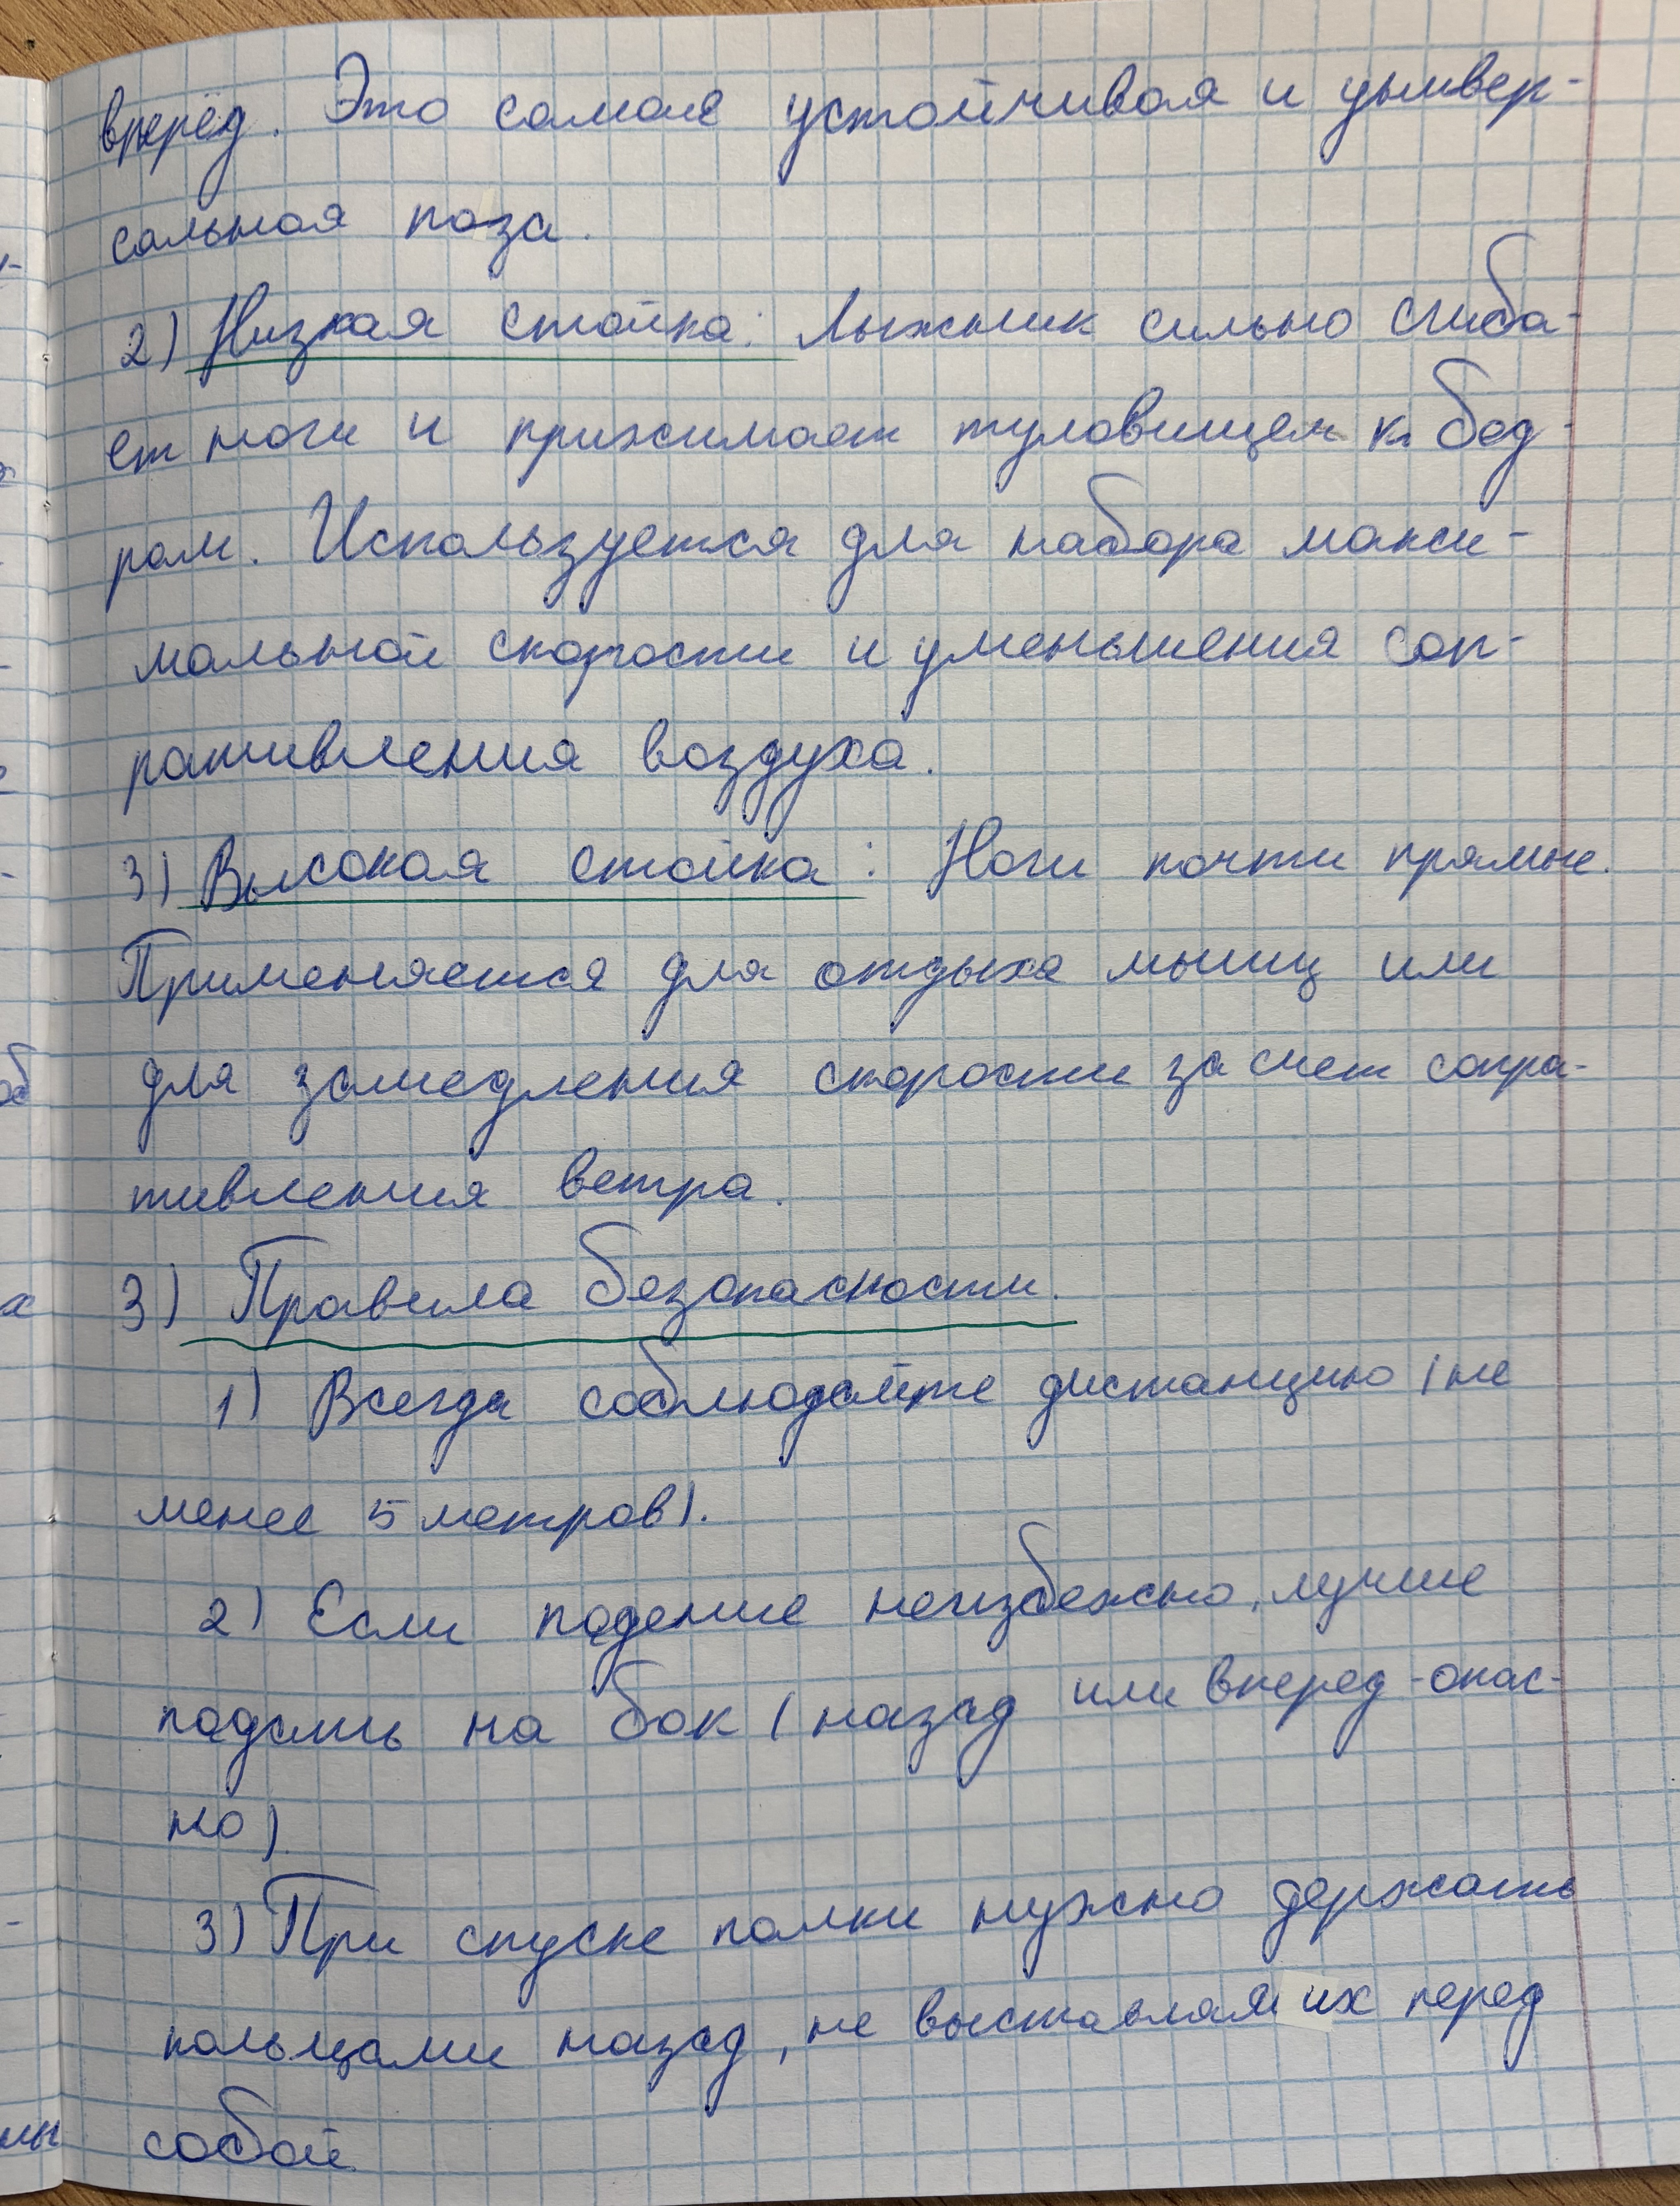 вперёд. Это самая устойчивая и универ-
сальная поза.
2) Низкая стойка: Лыжник сильно сгиба-
ет ноги и прижимает туловищем к бед-
рам. Используется для набора макси-
мальной скорости и уменьшения соп-
ративления воздуха.
3) Высокая стойка: Ноги почти прямые.
Применяется для отдыха мышц или
для замедления скорости за счет сопра-
тивления ветра.
3) Правила безопасности.
1) Всегда соблюдайте дистанцию (не
менее 5 метров).
2) Если падение неизбежно, лучше
падать на бок (назад или вперед - опас-
но).
3) При спуске палки нужно держать
кольцами назад, не выставляя их перед
собой